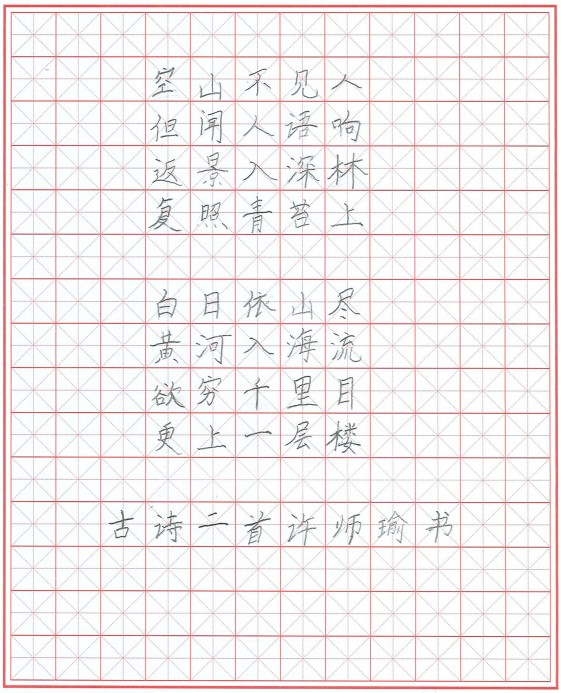 空山不见人
但闻人语响
返景入深林
复照青苔上
白日依山尽
黄河入海流
欲穷千里目
更上一层楼
古诗二首许师瑜书